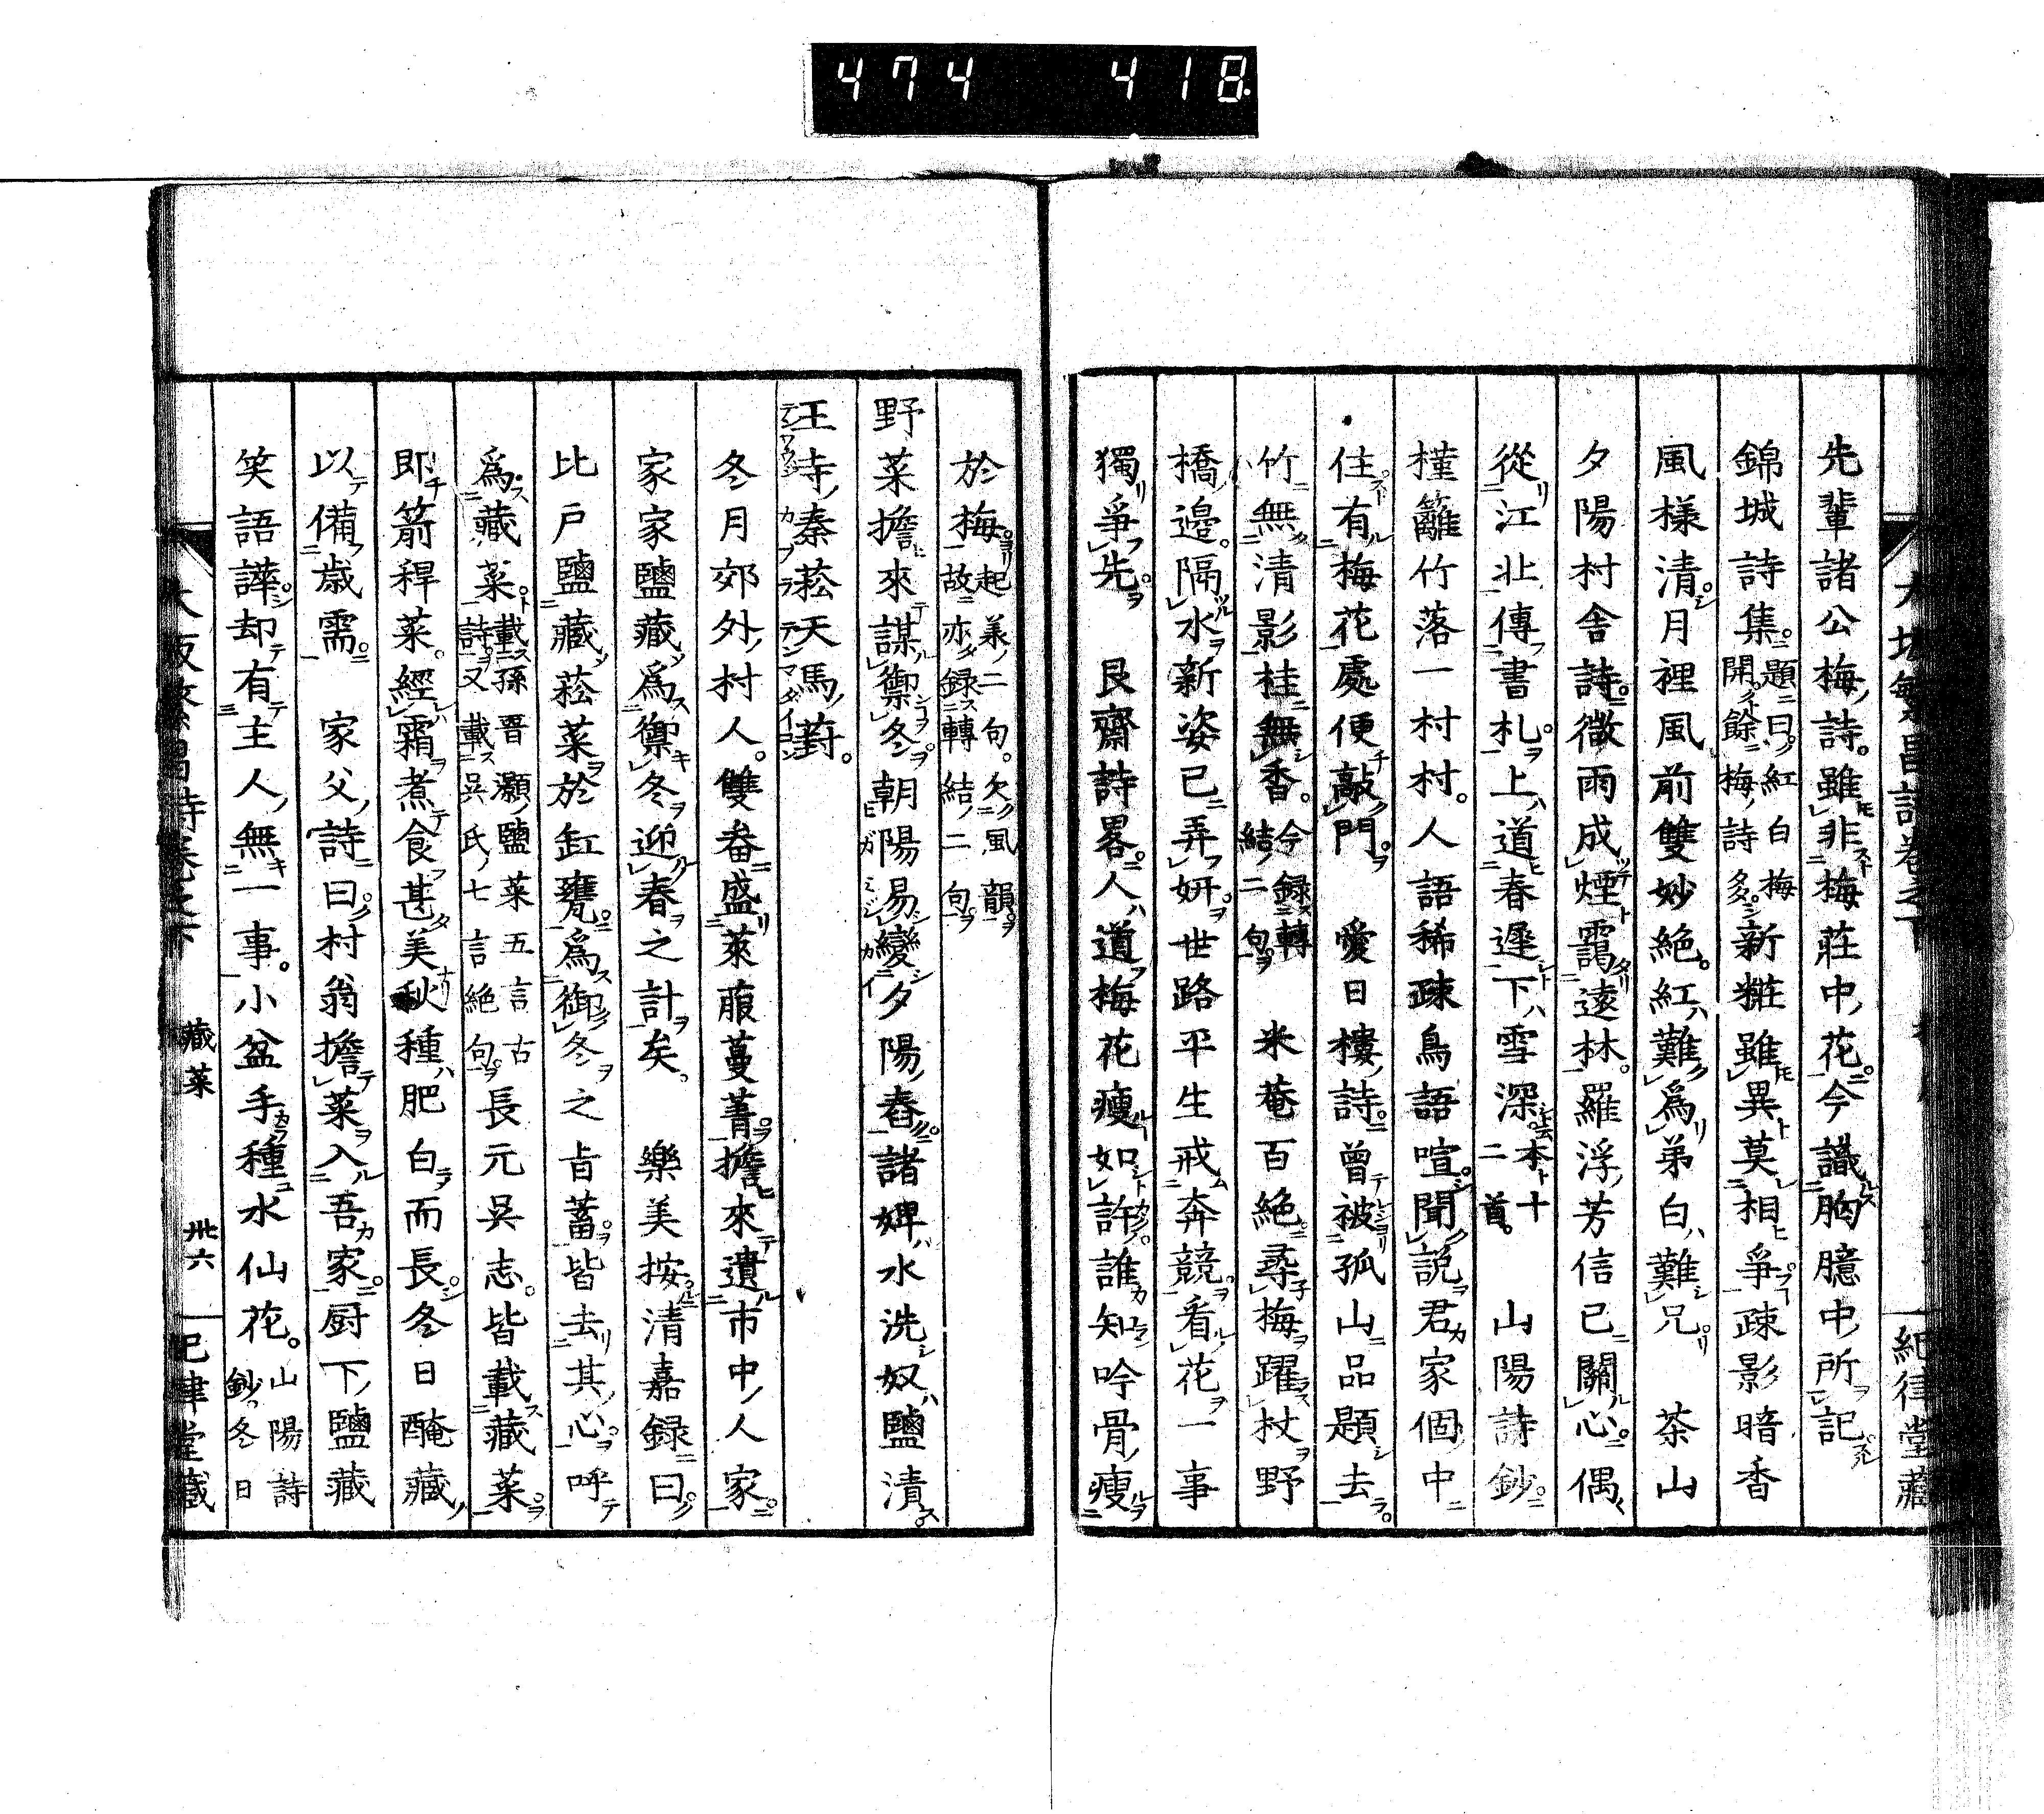 474 418
先輩諸公梅詩。雖非梅莊中花。今識胸臆中所記
錦城詩集。題曰紅白梅開餘梅詩多。新粧雖異莫相爭疎影暗香
風樣清。月裡風前雙妙絶。紅難爲弟白難兄 茶山
夕陽村舍詩。微雨成煙靄遠林。羅浮芳信已關心。偶
從江北傳書札。上道春遲下雪深。本十二首。 山陽詩鈔。
槿籬竹落一村村。人語稀疎鳥語喧。聞說君家個中
住。有梅花處便敲門。 愛日樓詩。曾被孤山品題去。
竹無清影桂無香。今録轉結二句。 米菴百絶。尋梅躍杖野
橋邊。隔水新姿已弄妍。世路平生戒奔競。看花一事
獨爭先。 艮齋詩畧。人道梅花瘦如許。誰知吟骨瘦
於梅。起承二句。欠風韻。故亦録轉結二句。
野菜擔來謀禦冬。朝陽易變夕陽舂。諸婢水洗奴鹽漬。
王寺秦菘天馬葑。
冬月郊外村人。雙畚盛萊菔蔓菁。擔來遺市中人家。
家家鹽藏爲禦冬迎春之計矣。 樂美按。清嘉録曰。
比戶鹽藏菘菜於缸甕。爲御冬之旨蓄。皆去其心。呼
爲藏菜。載孫晋灝鹽菜五言古詩。又載吳氏七言絶句。長元吳志。皆載藏菜。
即箭稈菜。經霜煮食甚美。秋種肥白而長。冬日醃藏
以備歲需。 家父詩曰。村翁擔菜入吾家。厨下鹽藏
笑語譁。却有主人無一事。小盆手種水仙花。山陽詩鈔。冬日
大阪繁昌詩卷之下 藏菜 卅六 巳津堂藏